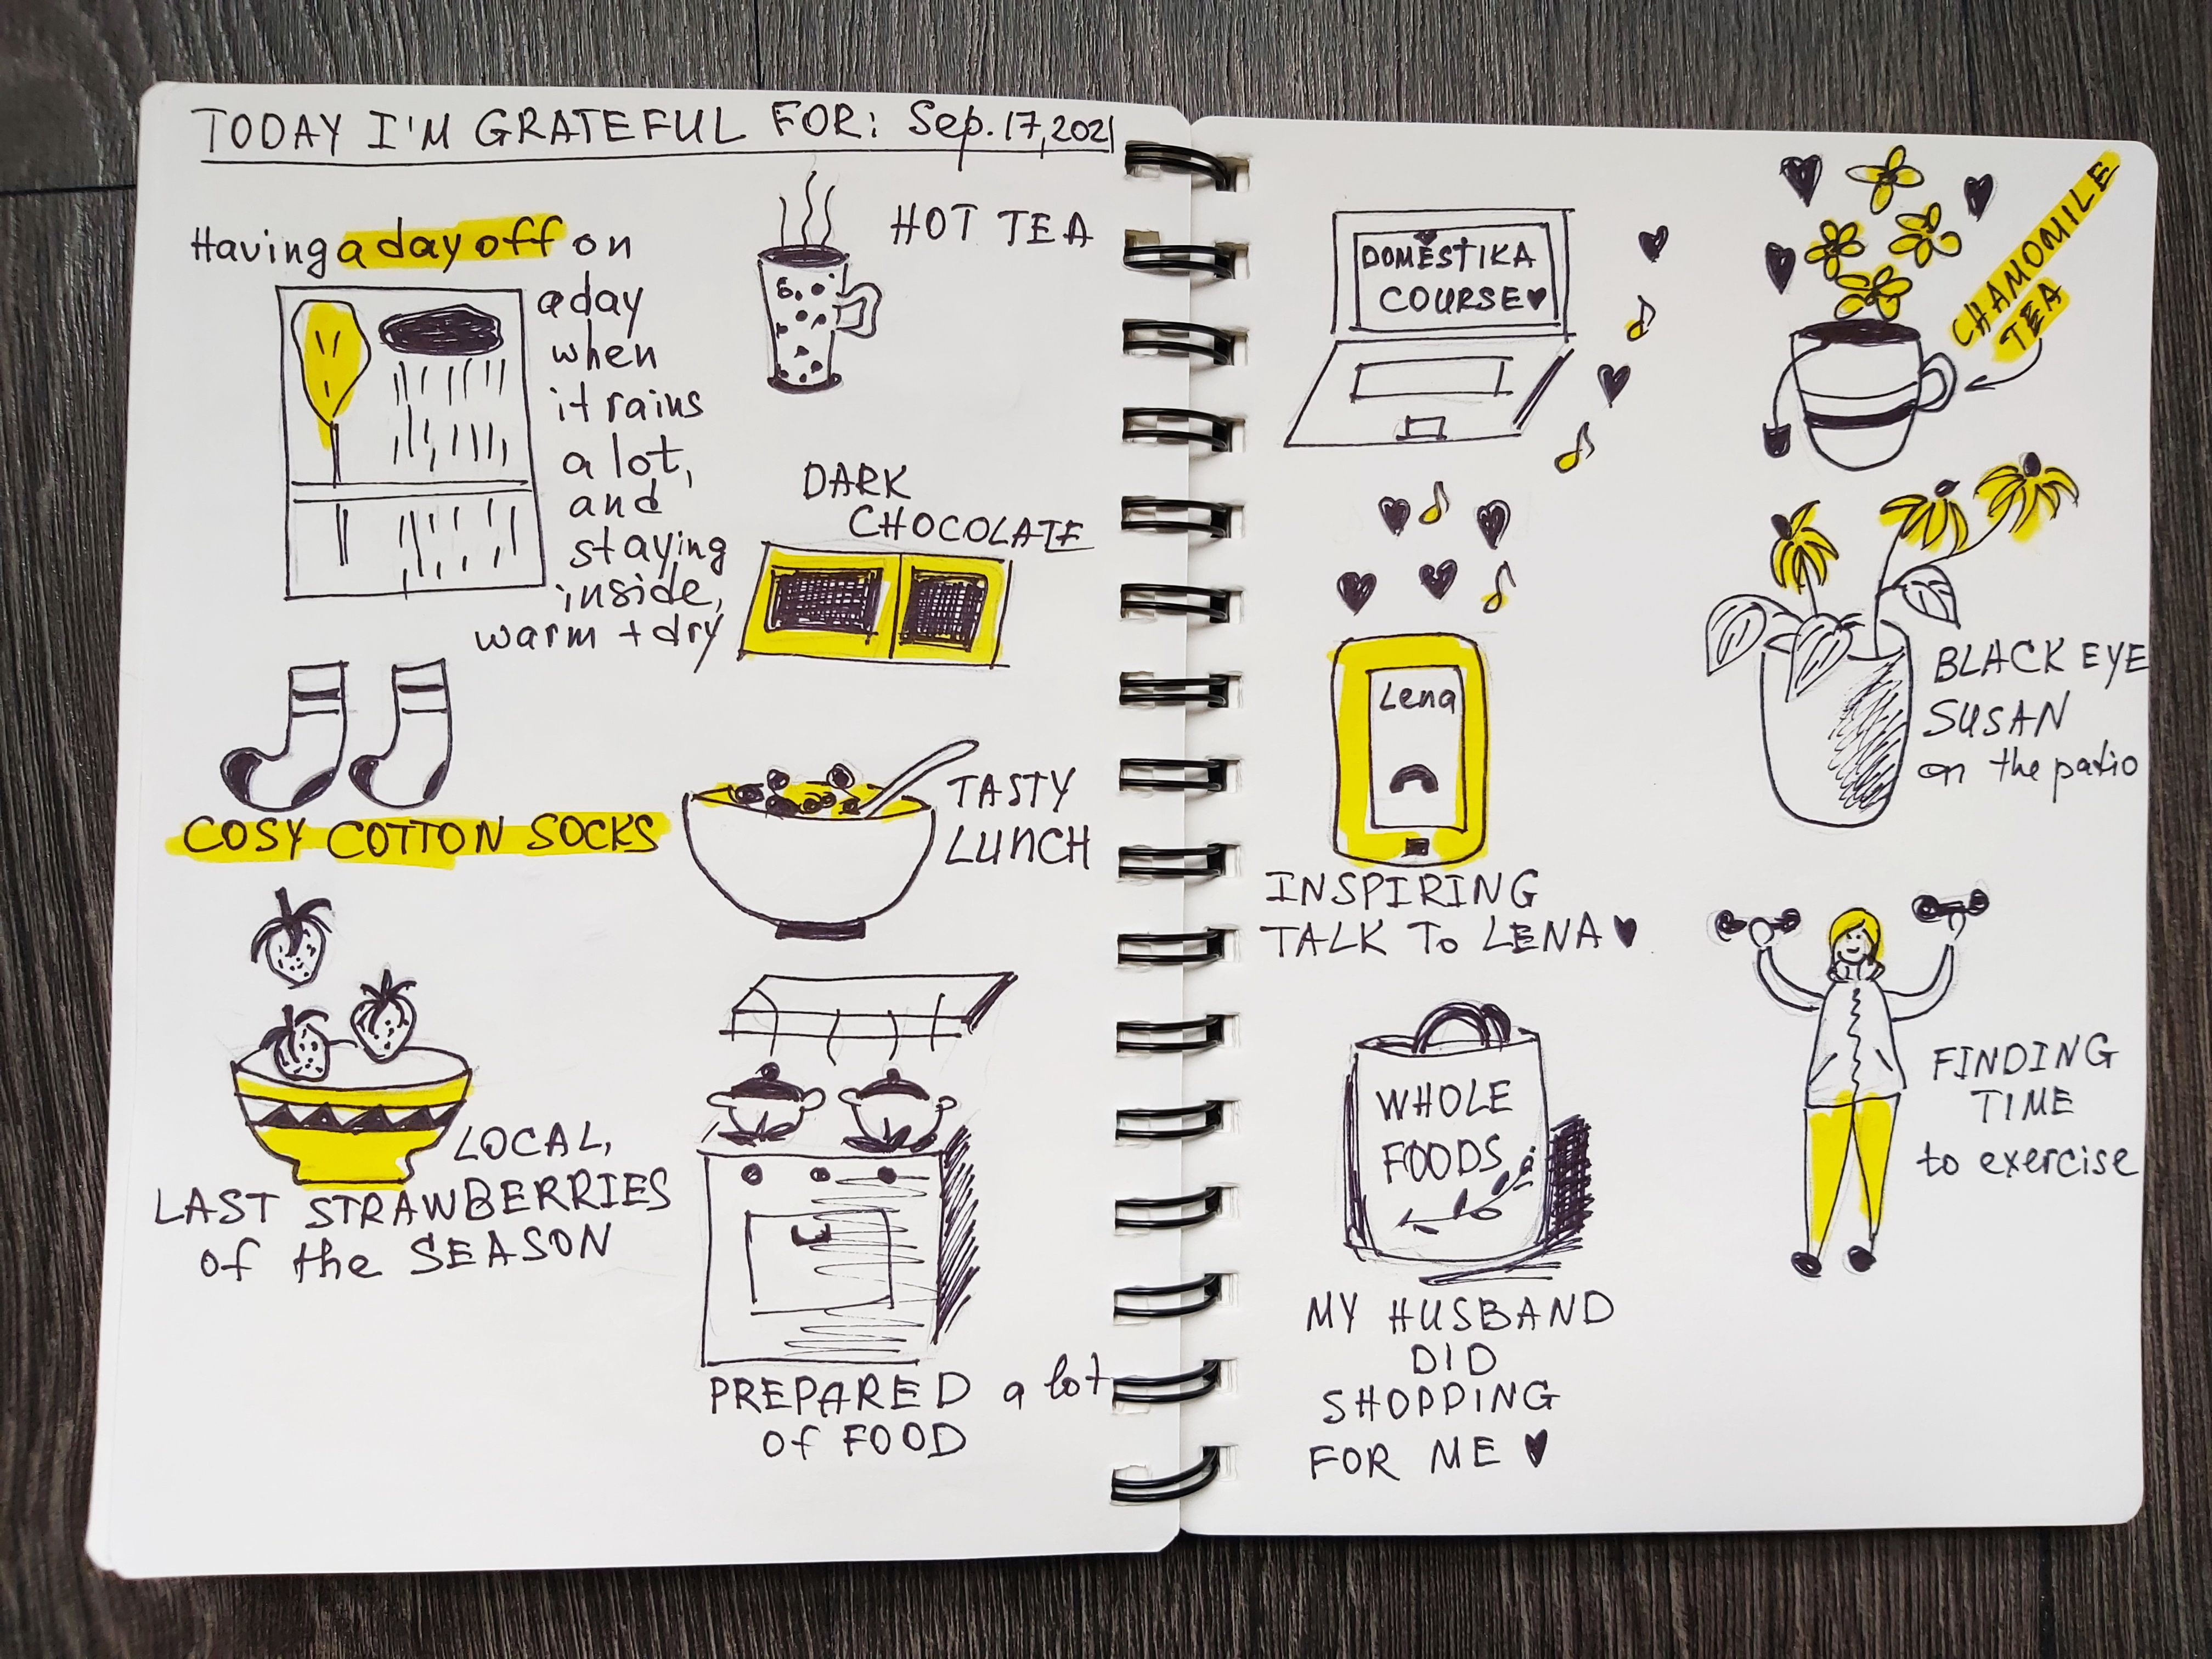 TODAY I'M GRATEFUL FOR: Sep. 17, 2021
Having a day off on
a day
when
it rains
a lot,
and
staying
inside,
warm + dry
HOT TEA
DARK
CHOCOLATE
COSY COTTON SOCKS
TASTY
LUNCH
LOCAL,
LAST STRAWBERRIES
of the SEASON
PREPARED a lot
of FOOD
DOMESTIKA
COURSE♥
CHAMOMILE
TEA
Lena
INSPIRING
TALK To LENA ♥
BLACK EYE
SUSAN
on the patio
WHOLE
FOODS
MY HUSBAND
DID
SHOPPING
FOR ME ♥
FINDING
TIME
to exercise